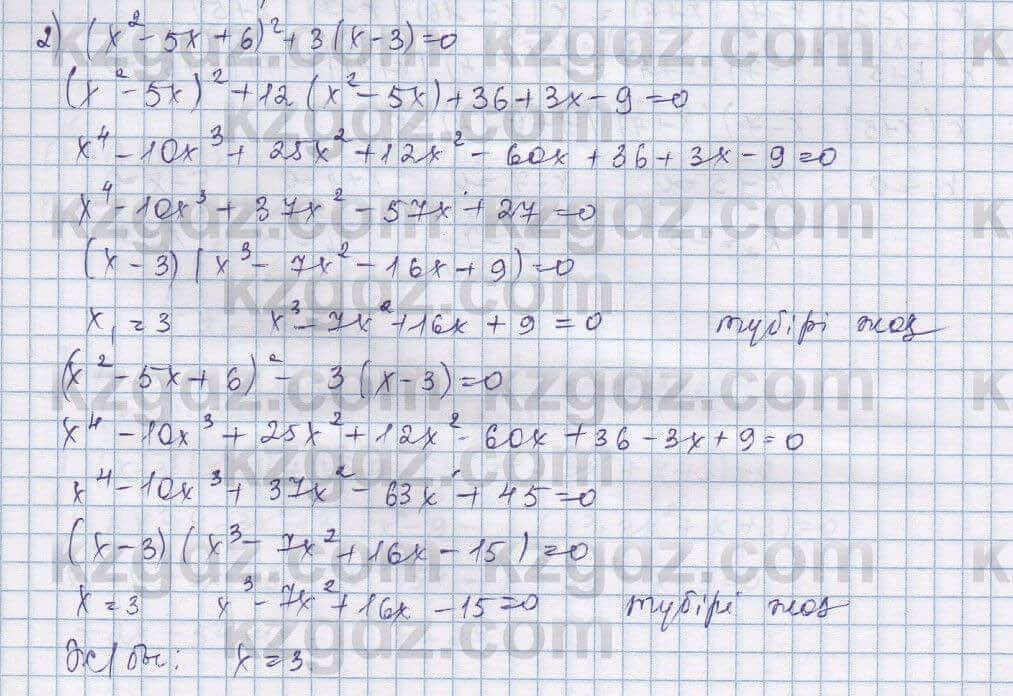 2) (x² - 5x + 6)² + 3(x - 3) = 0
(x² - 5x)² + 12(x² - 5x) + 36 + 3x - 9 = 0
x⁴ - 10x³ + 25x² + 12x² - 60x + 36 + 3x - 9 = 0
x⁴ - 10x³ + 37x² - 57x + 27 = 0
(x - 3)(x³ - 7x² - 16x + 9) = 0
x₁ = 3 x³ - 7x² + 16x + 9 = 0 түбірі жоқ
(x² - 5x + 6)² - 3(x - 3) = 0
x⁴ - 10x³ + 25x² + 12x² - 60x + 36 - 3x + 9 = 0
x⁴ - 10x³ + 37x² - 63x + 45 = 0
(x - 3)(x³ - 7x² + 16x - 15) = 0
x = 3 x³ - 7x² + 16x - 15 = 0 түбірі жоқ
Ж/бы: x = 3
kzgdz.com